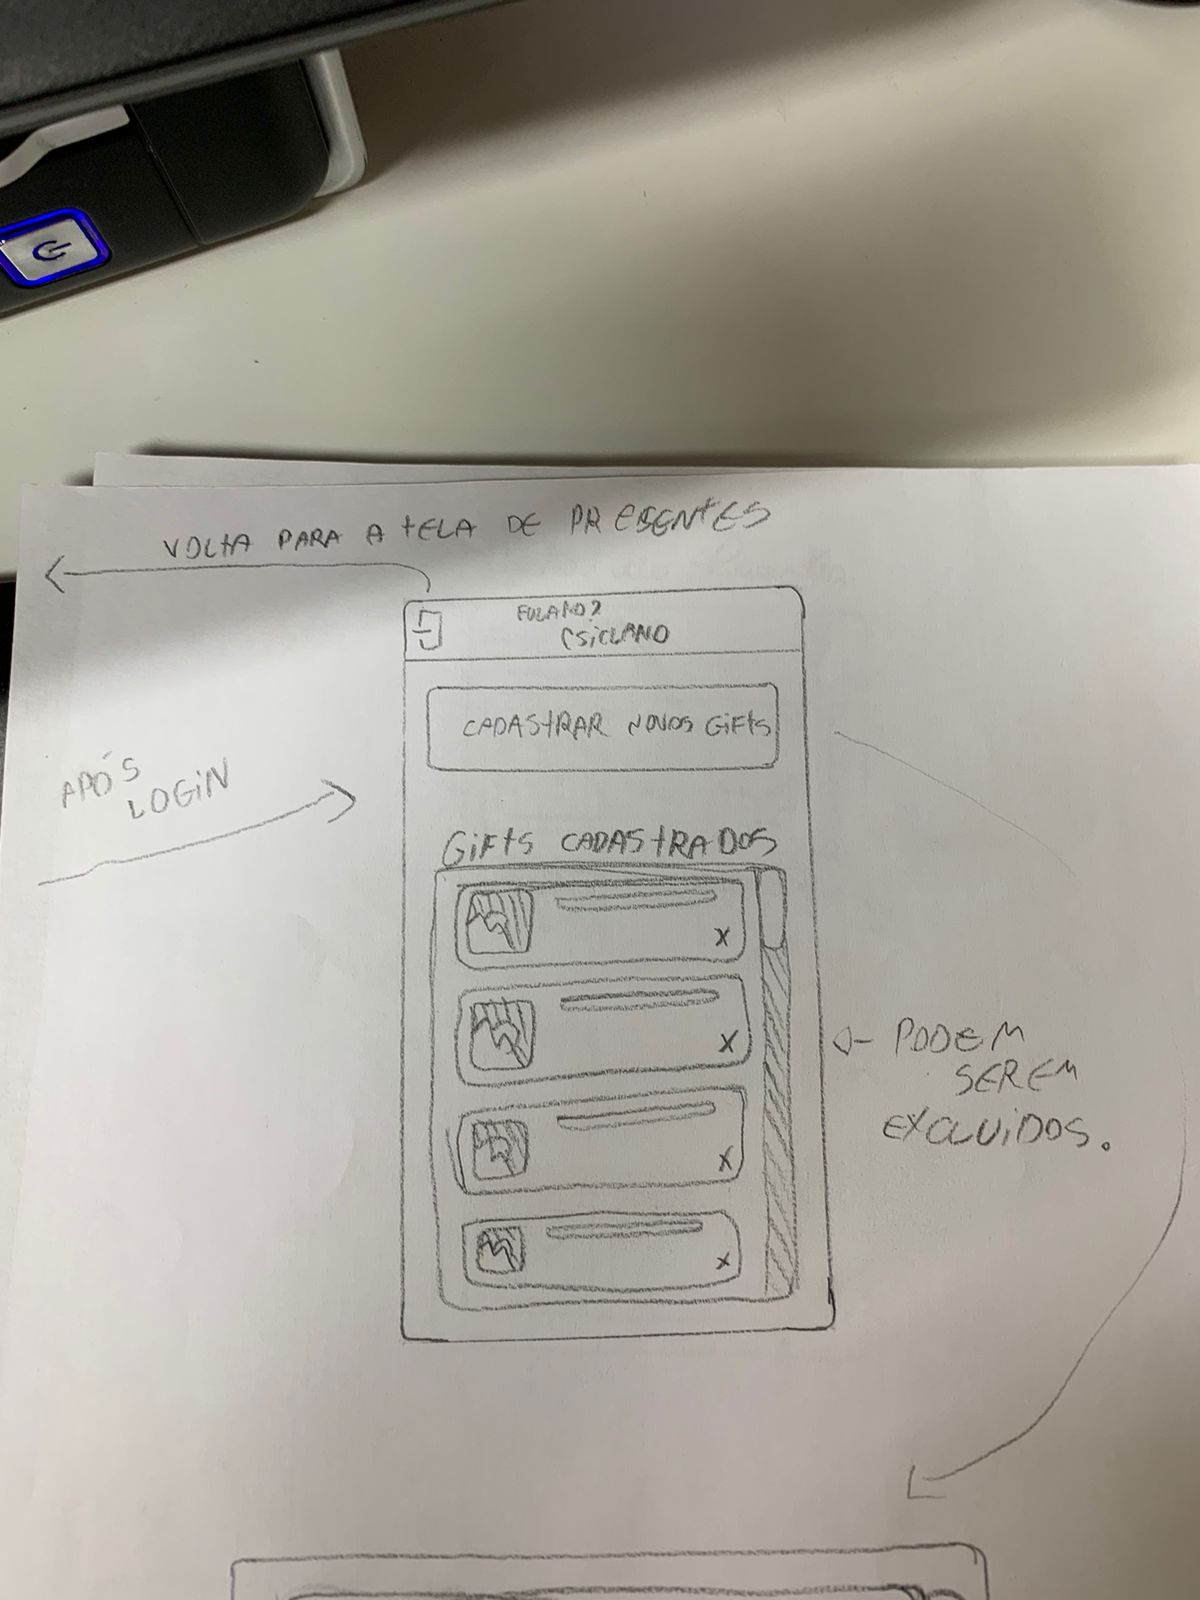 VOLTA PARA A TELA DE PRESENTES
FULANO &
CSICLANO
CADASTRAR NOVOS GIFTS
APÓS
LOGIN
GIFTS CADASTRADOS
X
X
PODEM
SEREM
EXCLUIDOS.
X
X